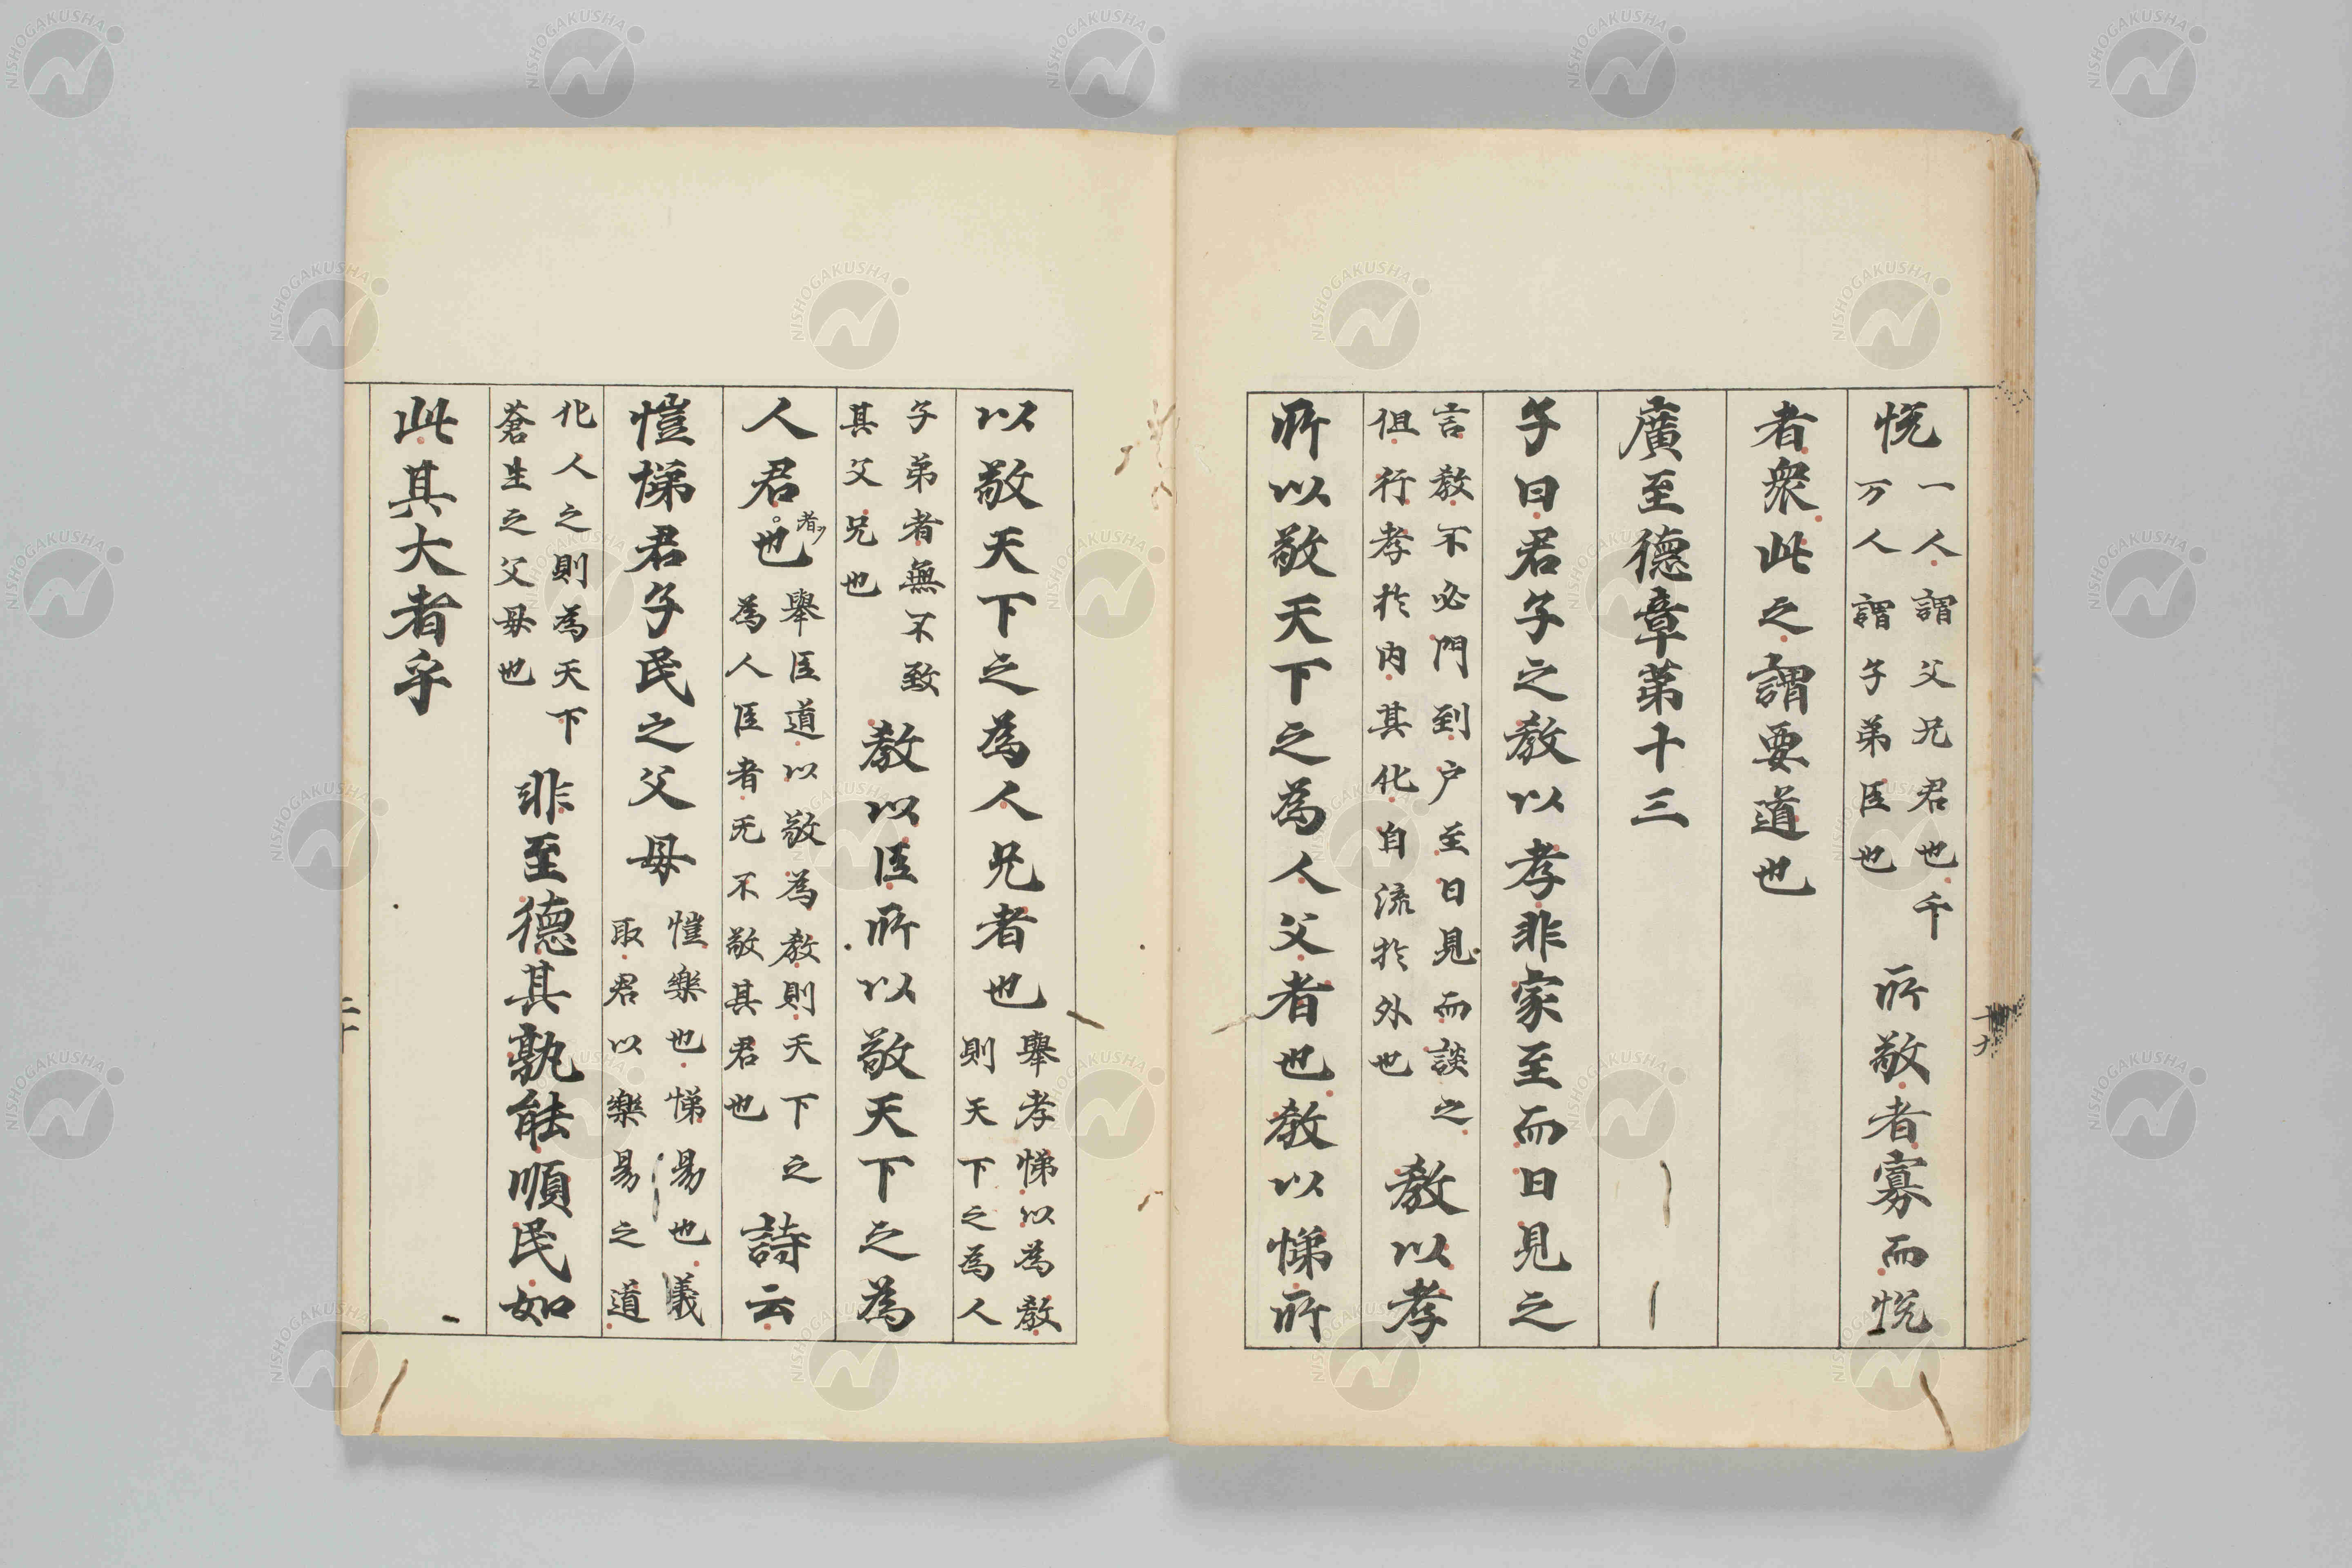 悅一人謂父兄君也千
万人謂子弟臣也所敬者寡而悅
者衆此之謂要道也
廣至德章第十三
子曰君子之教以孝非家至而日見之
言教不必門到户至日見而談之
但行孝於內其化自流於外也教以孝
所以敬天下之為人父者也教以悌所
以敬天下之為人兄者也舉孝悌以為教
則天下之為人
子弟者無不致
其父兄也教以臣所以敬天下之為
人君也舉臣道以敬為教則天下之
為人臣者无不敬其君也詩云
者
愷悌君子民之父母愷樂也悌易也義
取君以樂易之道
化人之則為天下
蒼生之父母也非至德其孰能順民如
此其大者乎
二十
NISHOGAKUSHA